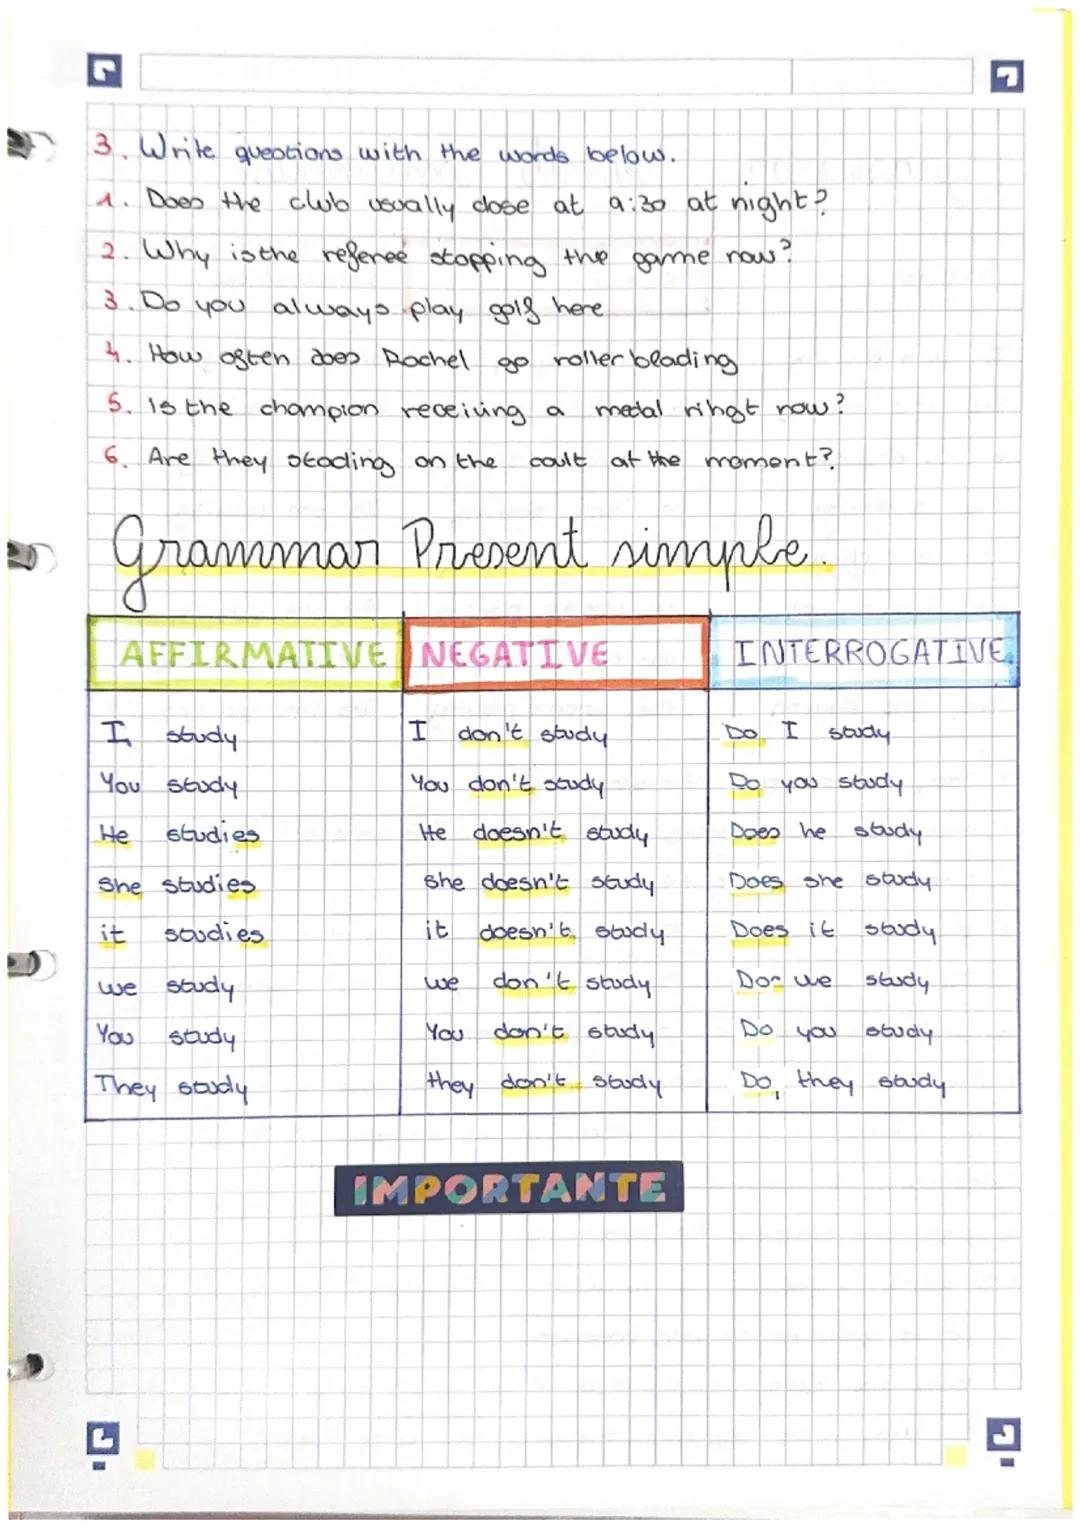 3. Write questions with the words below.
1. Does the club usually close at 9:30 at night?
2. Why is the referee stopping the game now?
3. Do you always play golf here
4. How often does Rachel go roller beading
5. Is the champion receiving a medal rihgt now?
6. Are they stading on the coult at the moment?
Grammar Present simple.
AFFIRMATIVE NEGATIVE INTERROGATIVE
I study I don't study Do I study
You study You don't study Do you study
He studies He doesn't study Does he study
She studies She doesn't study Does she study
it studies it doesn't study Does it study
we study we don't study Do we study
You study You don't study Do you study
They study they don't study Do they study
IMPORTANTE